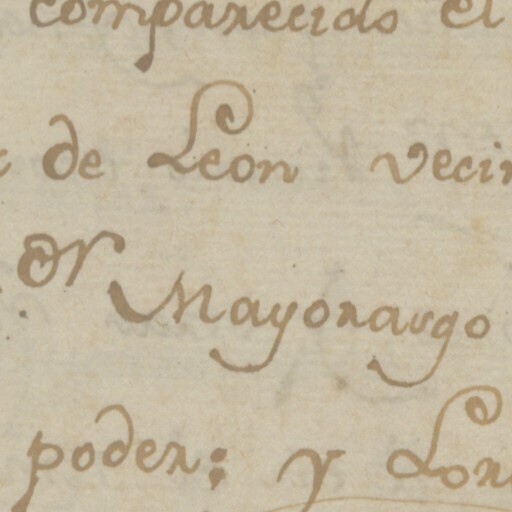 comparecido el
de Leon vecin
or Mayorasgo
poder; y Lor